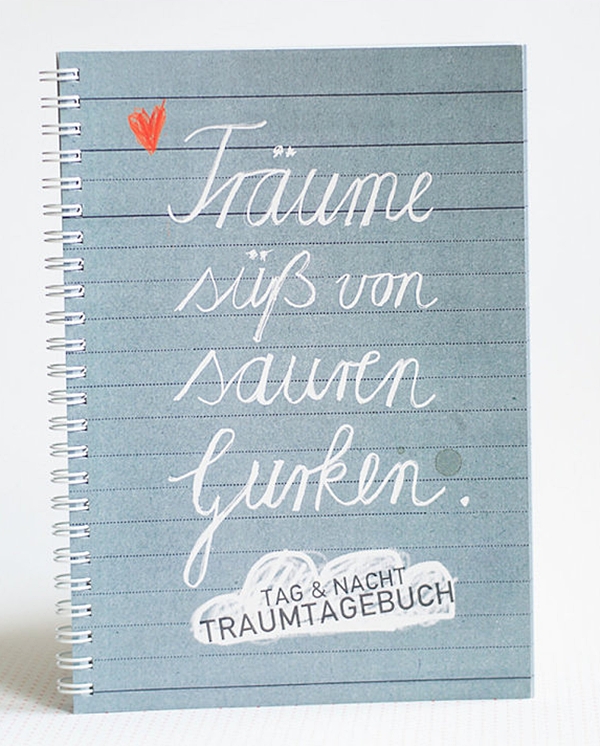 Träume
süß von
sauren
Gurken.
TAG & NACHT
TRAUMTAGEBUCH